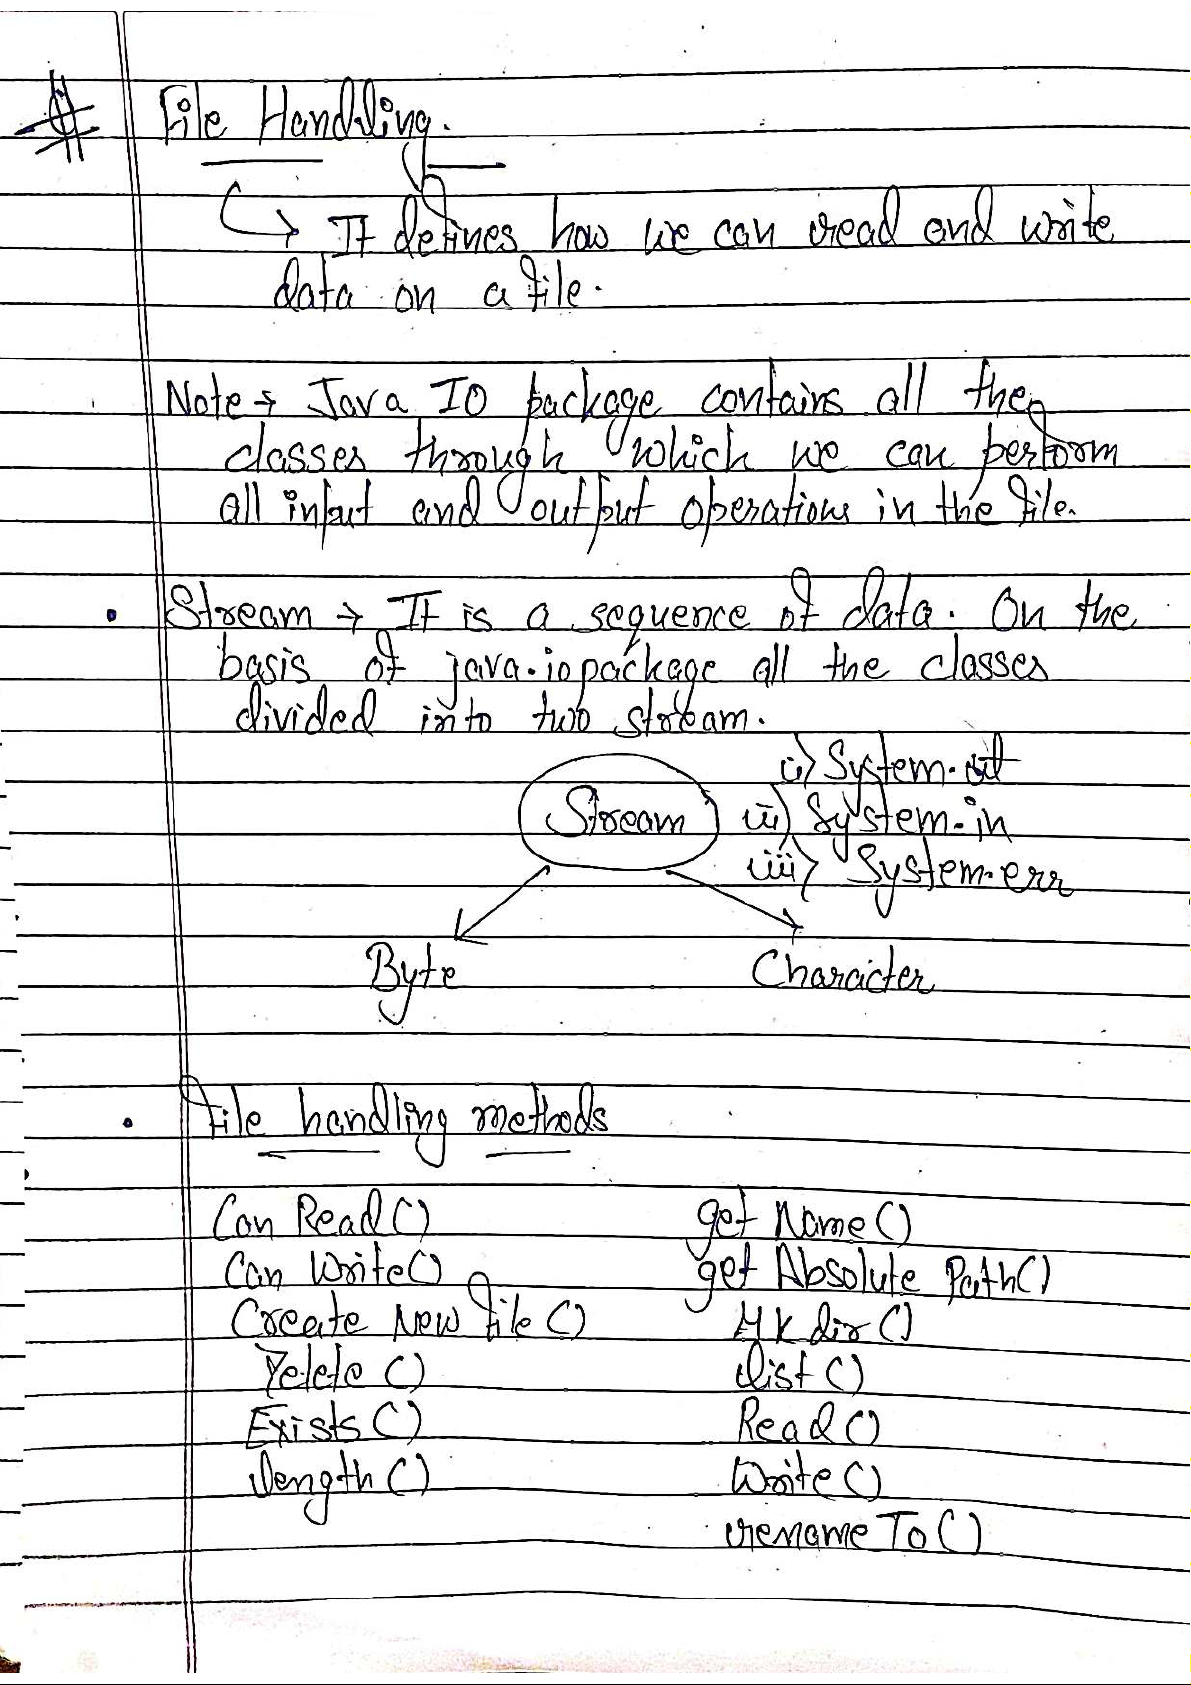 # File Handling.
↳ It defines how we can read and write
data on a file.
Note → Java IO package contains all the
classes through which we can perform
all input and output operations in the file.
• Stream → It is a sequence of data. On the
basis of java.io package all the classes
divided into two stream.
i) System.out
Stream ii) System.in
iii) System.err
Byte Character
• File handling methods
Can Read () get Name ()
Can Write () get Absolute Path ()
Create New File () Mk dir ()
Delete () list ()
Exists () Read ()
length () Write ()
rename To ()